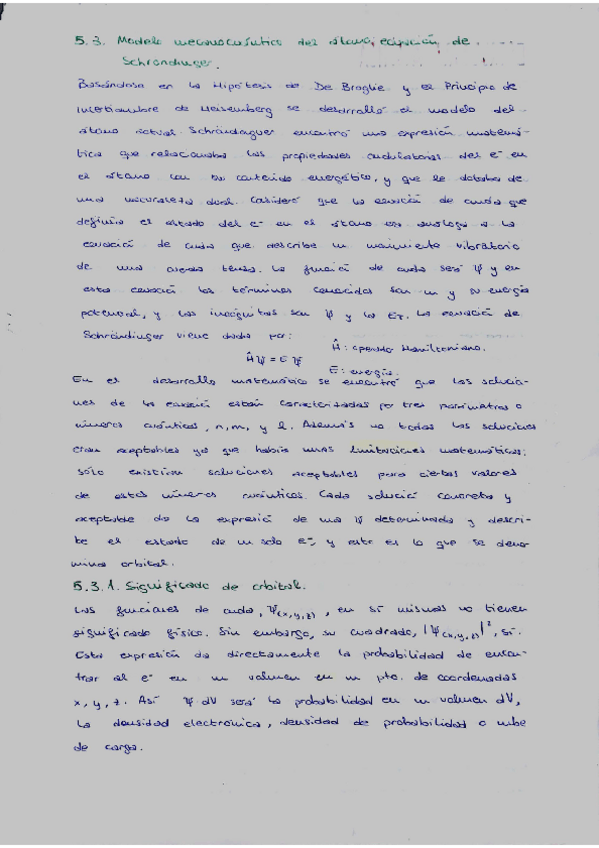 5.3. Modelo mecanocuántico del átomo, ecuación de
Schröndinger.
Basándose en la Hipótesis de De Broglie y el Principio de
Incertidumbre de Heisemberg se desarrolló el modelo del
átomo actual. Schröndinguer encontró una expresión matemá-
tica que relacionaba las propiedades ondulatorias del e⁻ en
el átomo con su contenido energético, y que le dotaba de
una naturaleza dual. Consideró que la ecuación de onda que
definía el estado del e⁻ en el átomo era análoga a la
ecuación de onda que describe un movimiento vibratorio
de una cuerda tensa. La función de onda será Ψ y en
esta ecuación los términos conocidos son m y su energía
potencial, y las incógnitas son Ψ y la E_T. La ecuación de
Schröndinger viene dada por:
Ĥ: operador Hamiltoniano.
ĤΨ = EΨ
E: energía.
En el desarrollo matemático se encontró que las solucio-
nes de la ecuación están caracterizadas por tres parámetros o
números cuánticos, n, m, y l. Además no todas las soluciones
eran aceptables ya que había unas limitaciones matemáticas;
sólo existían soluciones aceptables para ciertos valores
de estos números cuánticos. Cada solución concreta y
aceptable da la expresión de una Ψ determinada y descri-
be el estado de un solo e⁻, y este es lo que se deno-
mina orbital.
5.3.1. Significado de orbital.
Las funciones de onda, Ψ(x,y,z), en sí mismas no tienen
significado físico. Sin embargo, su cuadrado, |Ψ(x,y,z)|², sí.
Esta expresión da directamente la probabilidad de encon-
trar al e⁻ en un volumen en un pto. de coordenadas
x, y, z. Así Ψ dV será la probabilidad en un volumen dV,
la densidad electrónica, densidad de probabilidad o nube
de carga.